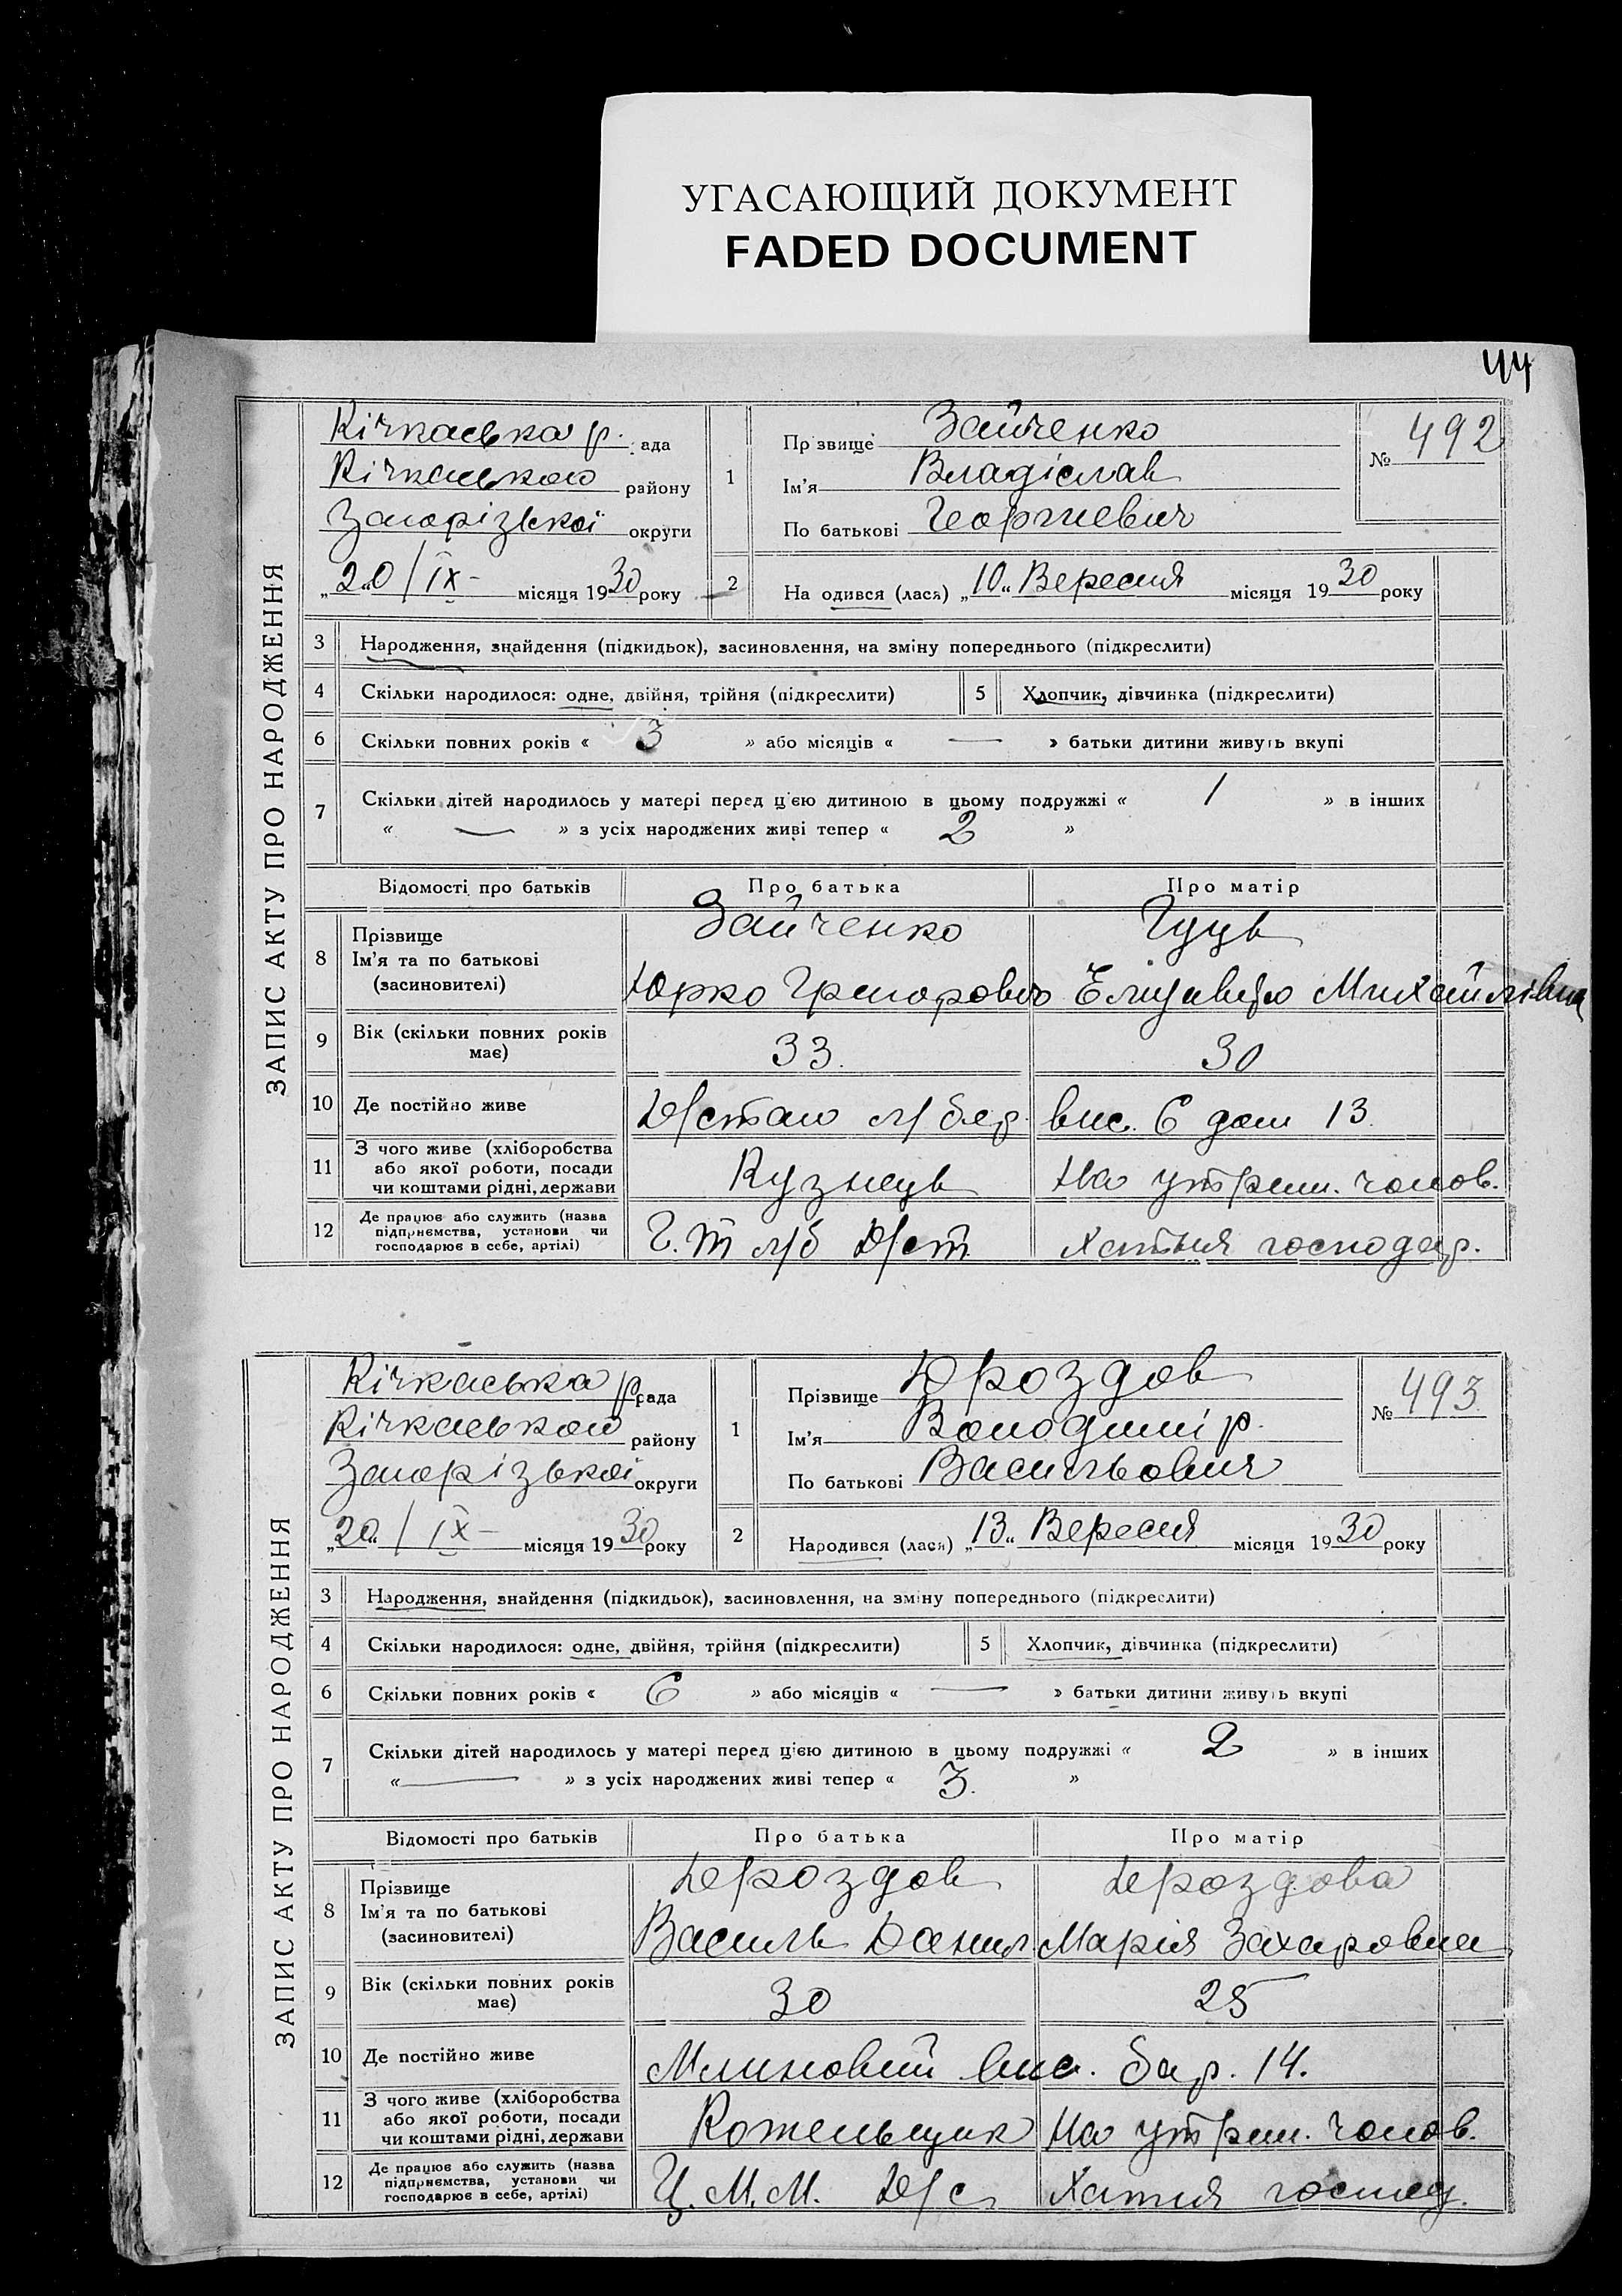 УГАСАЮЩИЙ ДОКУМЕНТ
FADED DOCUMENT
44
ЗАПИС АКТУ ПРО НАРОДЖЕННЯ
Кічкаська р. ада
Кічкаського району
Запорізької округи
„20“ / IX - місяця 1930 року
1
Пр звище Зайченко
Ім'я Владіслав
По батькові Георгиевич
№ 492
2
На одився (лася) „10“ Вересня місяця 1930 року
3 Народження, знайдення (підкидьок), засиновлення, на зміну попереднього (підкреслити)
4 Скільки народилося: одне, двійня, трійня (підкреслити) 5 Хлопчик, дівчинка (підкреслити)
6 Скільки повних років « 3 » або місяців « — » батьки дитини живуть вкупі
7 Скільки дітей народилось у матері перед цією дитиною в цьому подружжі « 1 » в інших
« — » з усіх народжених живі тепер « 2 »
Відомості про батьків Про батька Про матір
8 Прізвище Ім'я та по батькові (засновителі)
Зайченко Гуць
Юрко Григорович Елизавета Михайлівна
9 Вік (скільки повних років має) 33. 30
10 Де постійно живе вис. 6 дом 13
11 З чого живе (хліборобства або якої роботи, посади чи коштами рідні, держави Кузнець На утрим. чолов.
12 Де працює або служить (назва підприємства, установи чи господарює в себе, артілі) Хатня господар.
ЗАПИС АКТУ ПРО НАРОДЖЕННЯ
Кічкаська р. рада
Кічкаського району
Запорізької округи
„20“ / IX - місяця 1930 року
1
Прізвище Дроздов
Ім'я Володимір
По батькові Васильович
№ 493
2
Народився (лася) „13“ Вересня місяця 1930 року
3 Народження, знайдення (підкидьок), засиновлення, на зміну попереднього (підкреслити)
4 Скільки народилося: одне, двійня, трійня (підкреслити) 5 Хлопчик, дівчинка (підкреслити)
6 Скільки повних років « 6 » або місяців « — » батьки дитини живуть вкупі
7 Скільки дітей народилось у матері перед цією дитиною в цьому подружжі « 2 » в інших
« — » з усіх народжених живі тепер « 3. »
Відомості про батьків Про батька Про матір
8 Прізвище Ім'я та по батькові (засиновителі)
Дроздов Дроздова
Василь Данил Марія Захаровна
9 Вік (скільки повних років має) 30 25
10 Де постійно живе Млиновий вис. бар. 14.
11 З чого живе (хліборобства або якої роботи, посади чи коштами рідні, держави Котельщик На утрим. чолов.
12 Де працює або служить (назва підприємства, установи чи господарює в себе, артілі) Ц.М.М. Д/с Хатня господ.